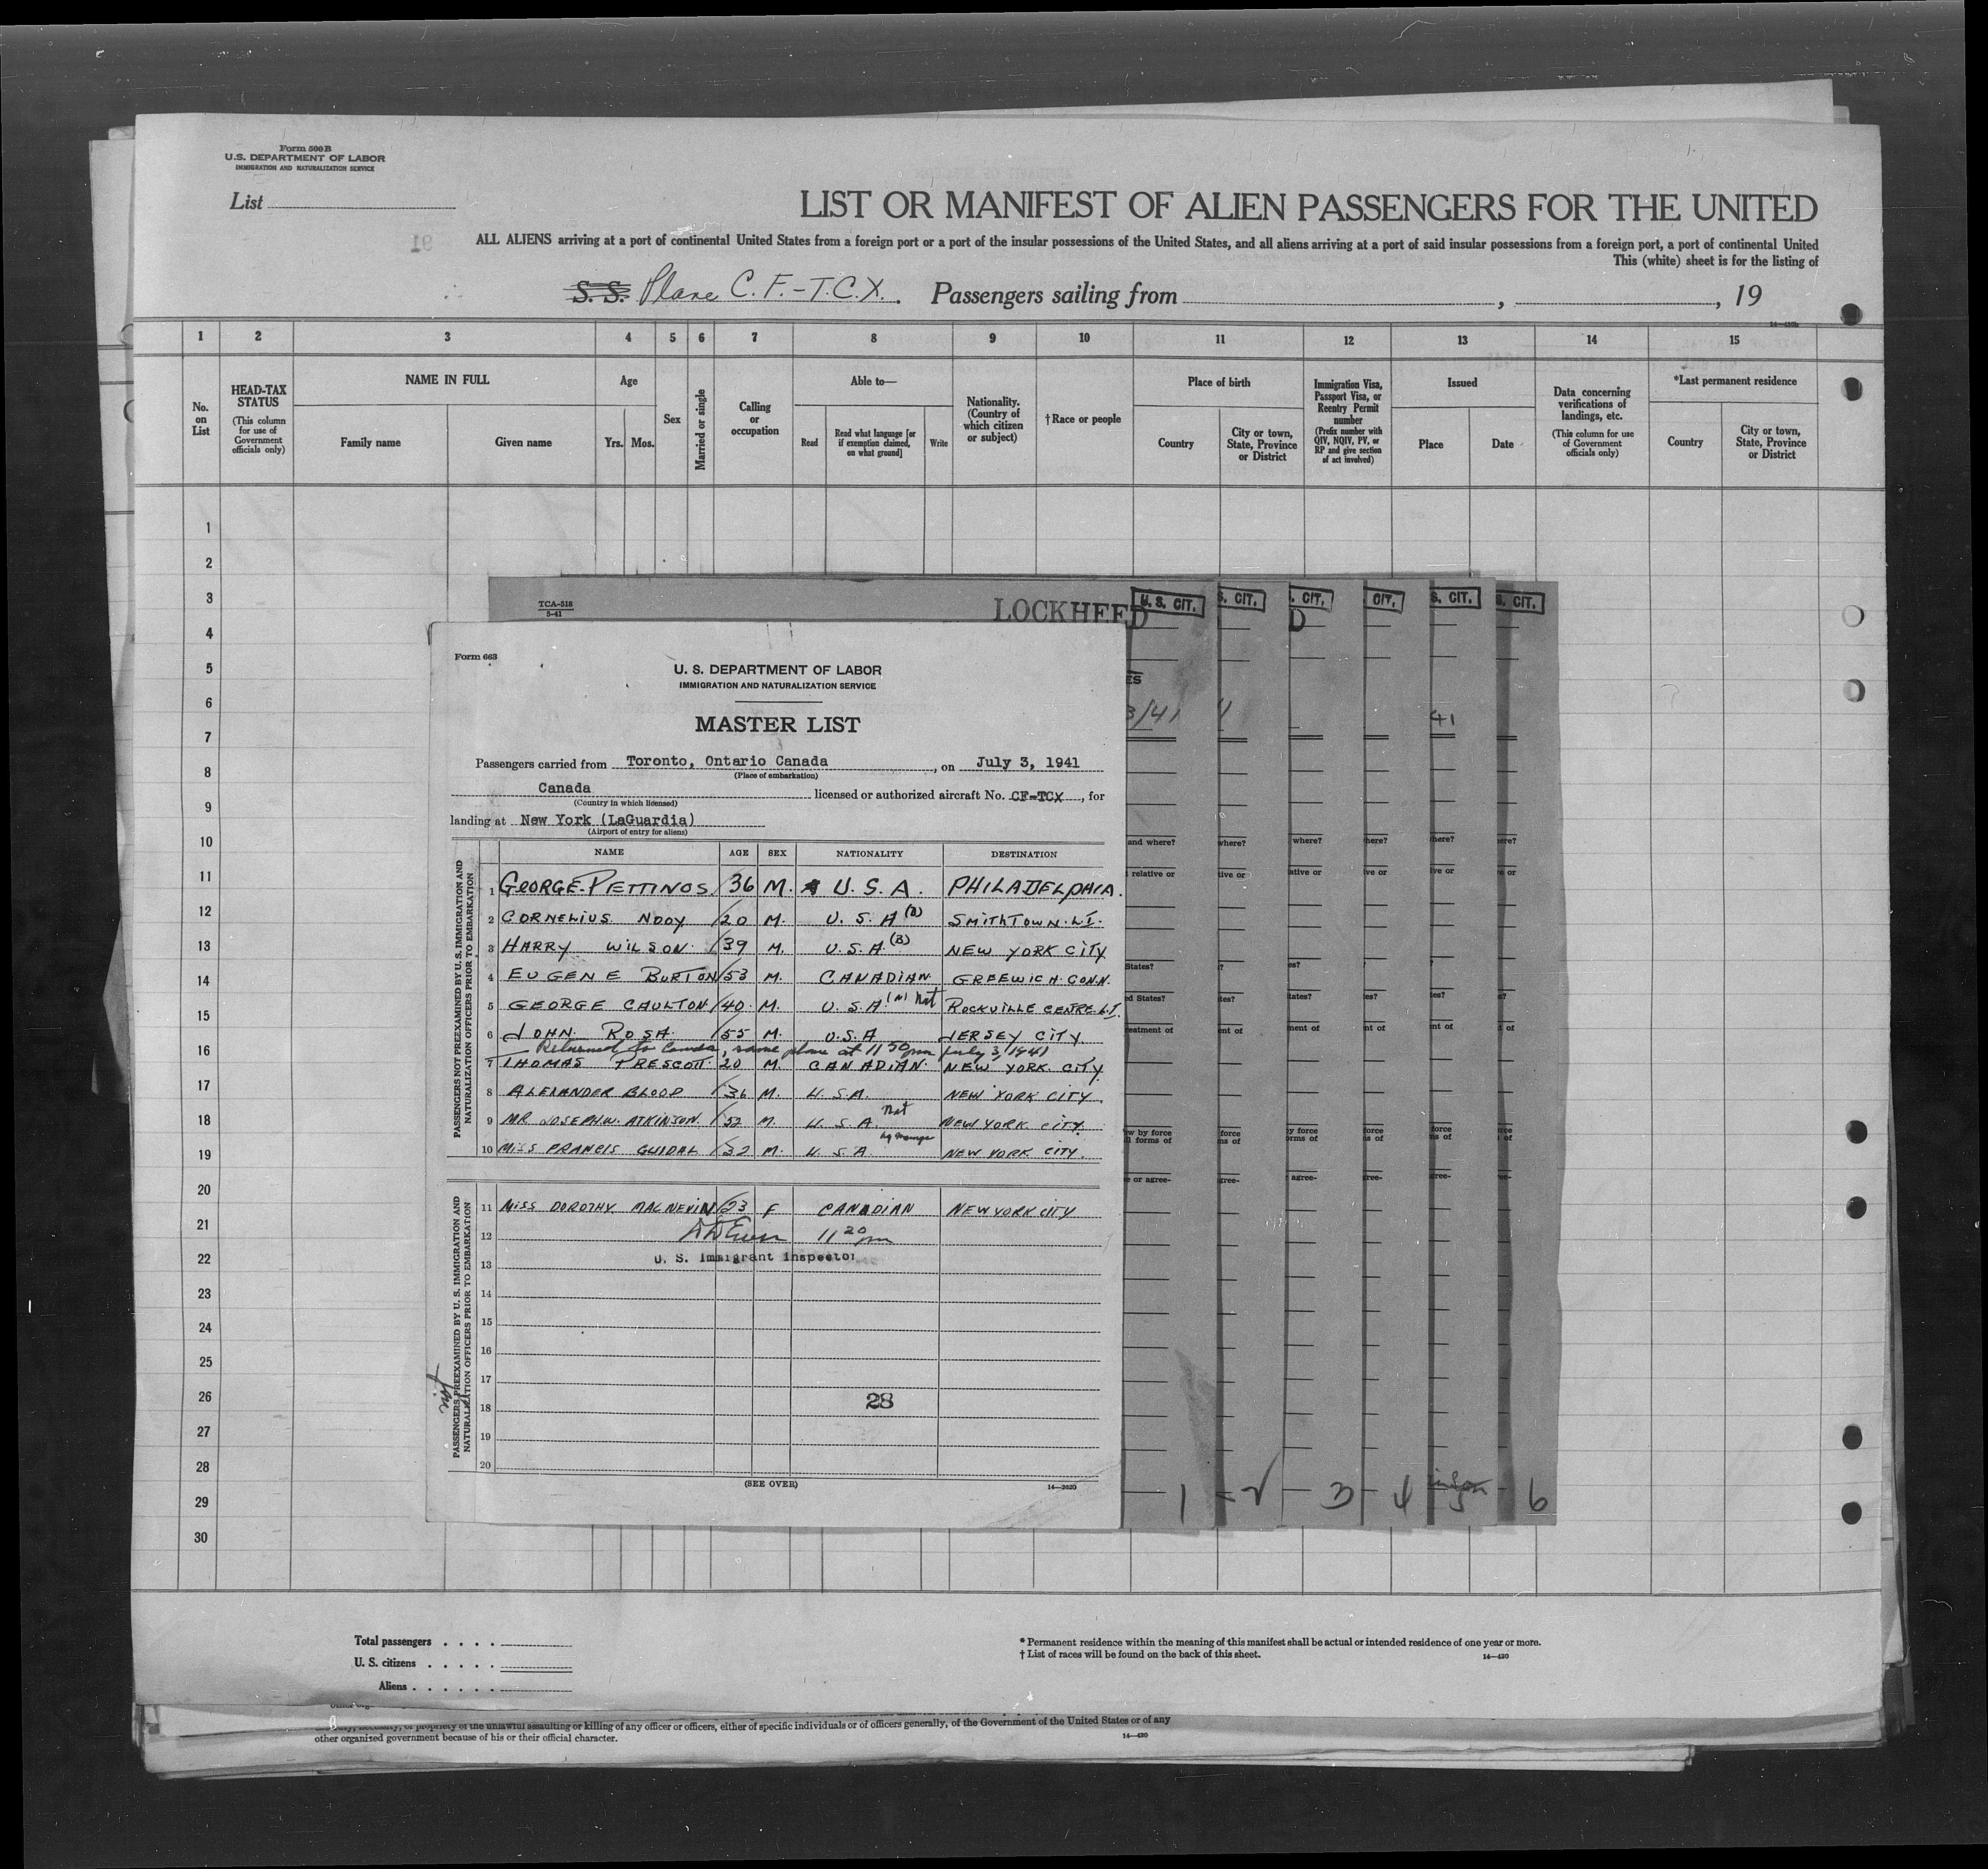 Form 500B
U.S. DEPARTMENT OF LABOR
IMMIGRATION AND NATURALIZATION SERVICE
List
LIST OR MANIFEST OF ALIEN PASSENGERS FOR THE UNITED
ALL ALIENS arriving at a port of continental United States from a foreign port or a port of the insular possessions of the United States, and all aliens arriving at a port of said insular possessions from a foreign port, a port of continental United
This (white) sheet is for the listing of
S. S. Plane C. F.-T.C.X. Passengers sailing from , , 19
1 2 3 4 5 6 7 8 9 10 11 12 13 14 15
No. on List
HEAD-TAX STATUS (This column for use of Government officials only)
NAME IN FULL
Family name Given name
Age
Yrs. Mos.
Sex
Married or single
Calling or occupation
Able to—
Read
Read what language [or if exemption claimed, on what ground]
Write
Nationality. (Country of which citizen or subject)
†Race or people
Place of birth
Country
City or town, State, Province or District
Immigration Visa, Passport Visa, or Reentry Permit number
(Prefix number with QIV, NQIV, PV, or RP and give section of act involved)
Issued
Place Date
Data concerning verifications of landings, etc.
(This column for use of Government officials only)
*Last permanent residence
Country
City or town, State, Province or District
1
2
3
4
5
6
7
8
9
10
11
12
13
14
15
16
17
18
19
20
21
22
23
24
25
26
27
28
29
30
TCA-518
5-41
LOCKHEED
U. S. CIT. S. CIT. . CIT. CIT. S. CIT. S. CIT.
Form 663
U. S. DEPARTMENT OF LABOR
IMMIGRATION AND NATURALIZATION SERVICE
MASTER LIST
Passengers carried from Toronto, Ontario Canada , on July 3, 1941
(Place of embarkation)
Canada licensed or authorized aircraft No. CF-TCX , for
(Country in which licensed)
landing at New York (LaGuardia)
(Airport of entry for aliens)
NAME AGE SEX NATIONALITY DESTINATION
PASSENGERS NOT PREEXAMINED BY U. S. IMMIGRATION AND NATURALIZATION OFFICERS PRIOR TO EMBARKATION
1 GEORGE PETTINOS 36 M. U. S. A. PHILADELPHIA.
2 CORNELIUS NOOY 20 M. U. S. A (B) SMITHTOWN. L I.
3 HARRY WILSON. 39 M. U. S. A. (B) NEW YORK CITY
4 EUGENE BURTON 53 M. CANADIAN. GREEWICH. CONN.
5 GEORGE CAULTON 40. M. U. S. A. (N) Nat ROCKVILLE CENTRE L.I.
6 JOHN. ROSA. 55 M. U.S.A JERSEY CITY
Returned to Canada, same plane at 11 50 pm July 3, 1941
7 THOMAS TRESCOTT. 20 M. CANADIAN. NEW YORK. CITY.
8 ALEXANDER BLOOP 36 M. U. S. A. NEW YORK CITY.
9 MR JOSEPH.W. ATKINSON. 52 M. U. S. A. Nat NEW YORK CITY.
10 MISS FRANCIS GUIDAL 32 M. U. S. A. by marriage NEW YORK CITY.
PASSENGERS PREEXAMINED BY U. S. IMMIGRATION AND NATURALIZATION OFFICERS PRIOR TO EMBARKATION
11 MISS DOROTHY MACNEVIN 23 F CANADIAN NEW YORK CITY
12 11 20 pm
U. S. Immigrant Inspector
13
14
15
16
17
28
18
19
20
(SEE OVER)
14—2620
3/41 41
and where? where? where? here? here? ere?
1 2 3 4 5 6
Total passengers . . . .
U. S. citizens . . . . .
Aliens . . . . . .
* Permanent residence within the meaning of this manifest shall be actual or intended residence of one year or more.
† List of races will be found on the back of this sheet.
14—420
or propriety of the unlawful assaulting or killing of any officer or officers, either of specific individuals or of officers generally, of the Government of the United States or of any
other organized government because of his or their official character.
14—420